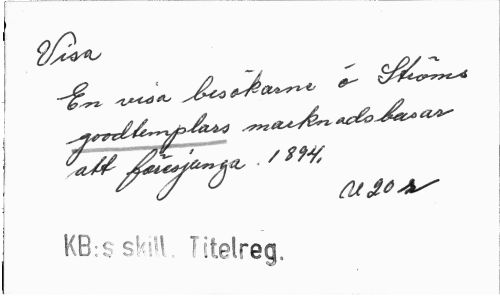 Visa
En visa besökarne å Ströms
goodtemplars marknadsbasar
att föresjunga. 1894.
U 20 r
KB:s skill. Titelreg.